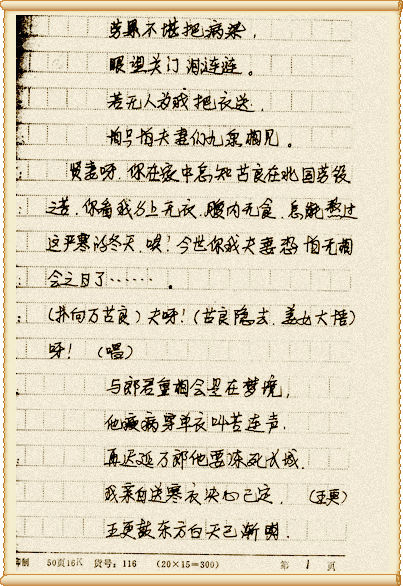 劳累不堪把病染，
眼望关门泪连涟。
若无人为我把衣送，
怕只怕夫妻们九泉相见。
贤妻呀，你在家中怎知杞良在北国劳役
之苦，你看我身上无衣，腹内无食，怎能熬过
这严寒的冬天，唉！今世你我夫妻恐怕无相
会之日了……。
（扑向万杞良）夫呀！（杞良隐去，姜女大悟）
呀！（唱）
与郎君重相会是在梦境，
他疾病穿单衣叫苦连声，
再迟延万郎他要冻死长城，
我亲自送寒衣决心已定，（五更）
五更鼓东方白天已渐明，
制 50页16K 货号：116 (20×15=300) 第 1 页